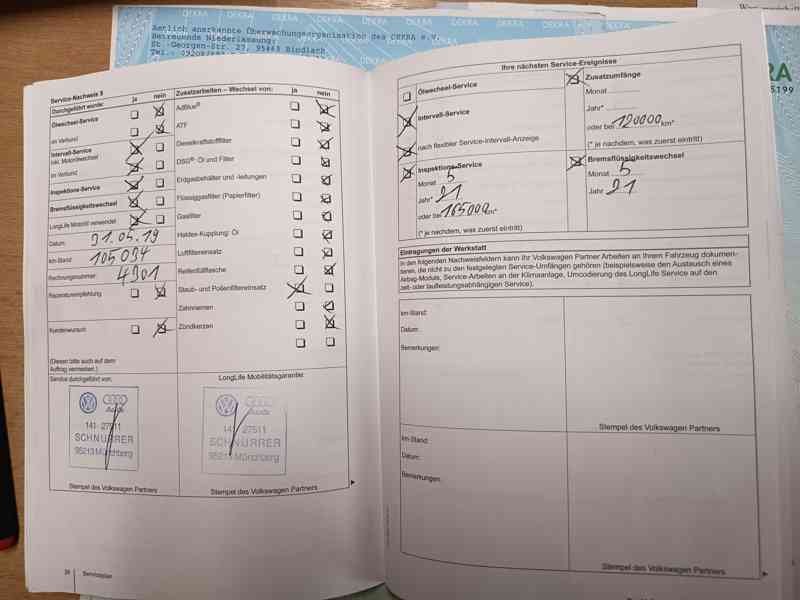 DEKRA DEKRA DEKRA DEKRA DEKRA
Amtlich anerkannte Überwachungsorganisation des DEKRA e.V.
Betreuende Niederlassung:
St.-Georgen-Str. 27, 95463 Bindlach
Tel.: 09208/
Service-Nachweis 9
Durchgeführt wurde: ja nein
Ölwechsel-Service
im Verbund
Intervall-Service
inkl. Motorölwechsel
im Verbund
Inspektions-Service
Bremsflüssigkeitswechsel
LongLife Mobilöl verwendet
Datum: 31.05.19
km-Stand: 105034
Rechnungsnummer: 4901
Reparaturempfehlung
Kundenwunsch
(Diesen bitte auch auf dem
Auftrag vermerken.)
Service durchgeführt von:
Audi
141- 27511
SCHNURRER
95213 Münchberg
Stempel des Volkswagen Partners
Zusatzarbeiten – Wechsel von: ja nein
AdBlue®
ATF
Dieselkraftstofffilter
DSG®: Öl und Filter
Erdgasbehälter und -leitungen
Flüssiggasfilter (Papierfilter)
Gasfilter
Haldex-Kupplung: Öl
Luftfiltereinsatz
Reifenfüllflasche
Staub- und Pollenfiltereinsatz
Zahnriemen
Zündkerzen
LongLife Mobilitätsgarantie:
Audi
141- 27511
SCHNURRER
95213 Münchberg
Stempel des Volkswagen Partners
Serviceplan
Ihre nächsten Service-Ereignisse
Ölwechsel-Service
Intervall-Service
nach flexibler Service-Intervall-Anzeige
Inspektions-Service
Monat 5
Jahr* 21
oder bei 165000 km*
(* je nachdem, was zuerst eintritt)
Zusatzumfänge
Monat
Jahr*
oder bei 120000 km*
(* je nachdem, was zuerst eintritt)
Bremsflüssigkeitswechsel
Monat 5
Jahr 21
Eintragungen der Werkstatt
In den folgenden Nachweisfeldern kann Ihr Volkswagen Partner Arbeiten an Ihrem Fahrzeug dokumen-
tieren, die nicht zu den festgelegten Service-Umfängen gehören (beispielsweise den Austausch eines
Airbag-Moduls, Service-Arbeiten an der Klimaanlage, Umcodierung des LongLife Service auf den
zeit- oder laufleistungsabhängigen Service).
km-Stand:
Datum:
Bemerkungen:
Stempel des Volkswagen Partners
km-Stand:
Datum:
Bemerkungen:
Stempel des Volkswagen Partners
RA
5199